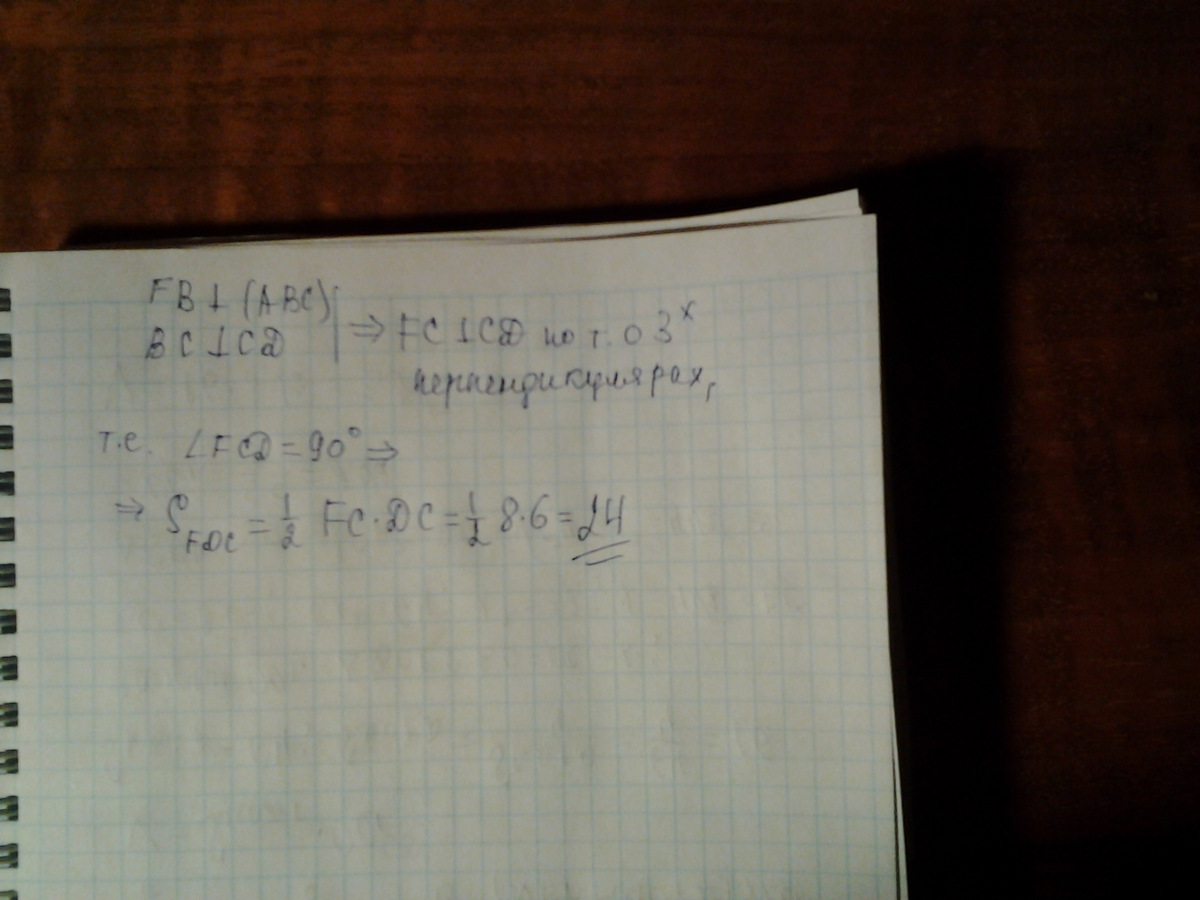 FB⊥(ABC)
BC⊥CD | ⇒ FC⊥CD по т. о 3ˣ
перпендикулярах,
т.е. ∠FCD = 90° ⇒
⇒ S_FDC = 1/2 FC·DC = 1/2 8·6 = 24